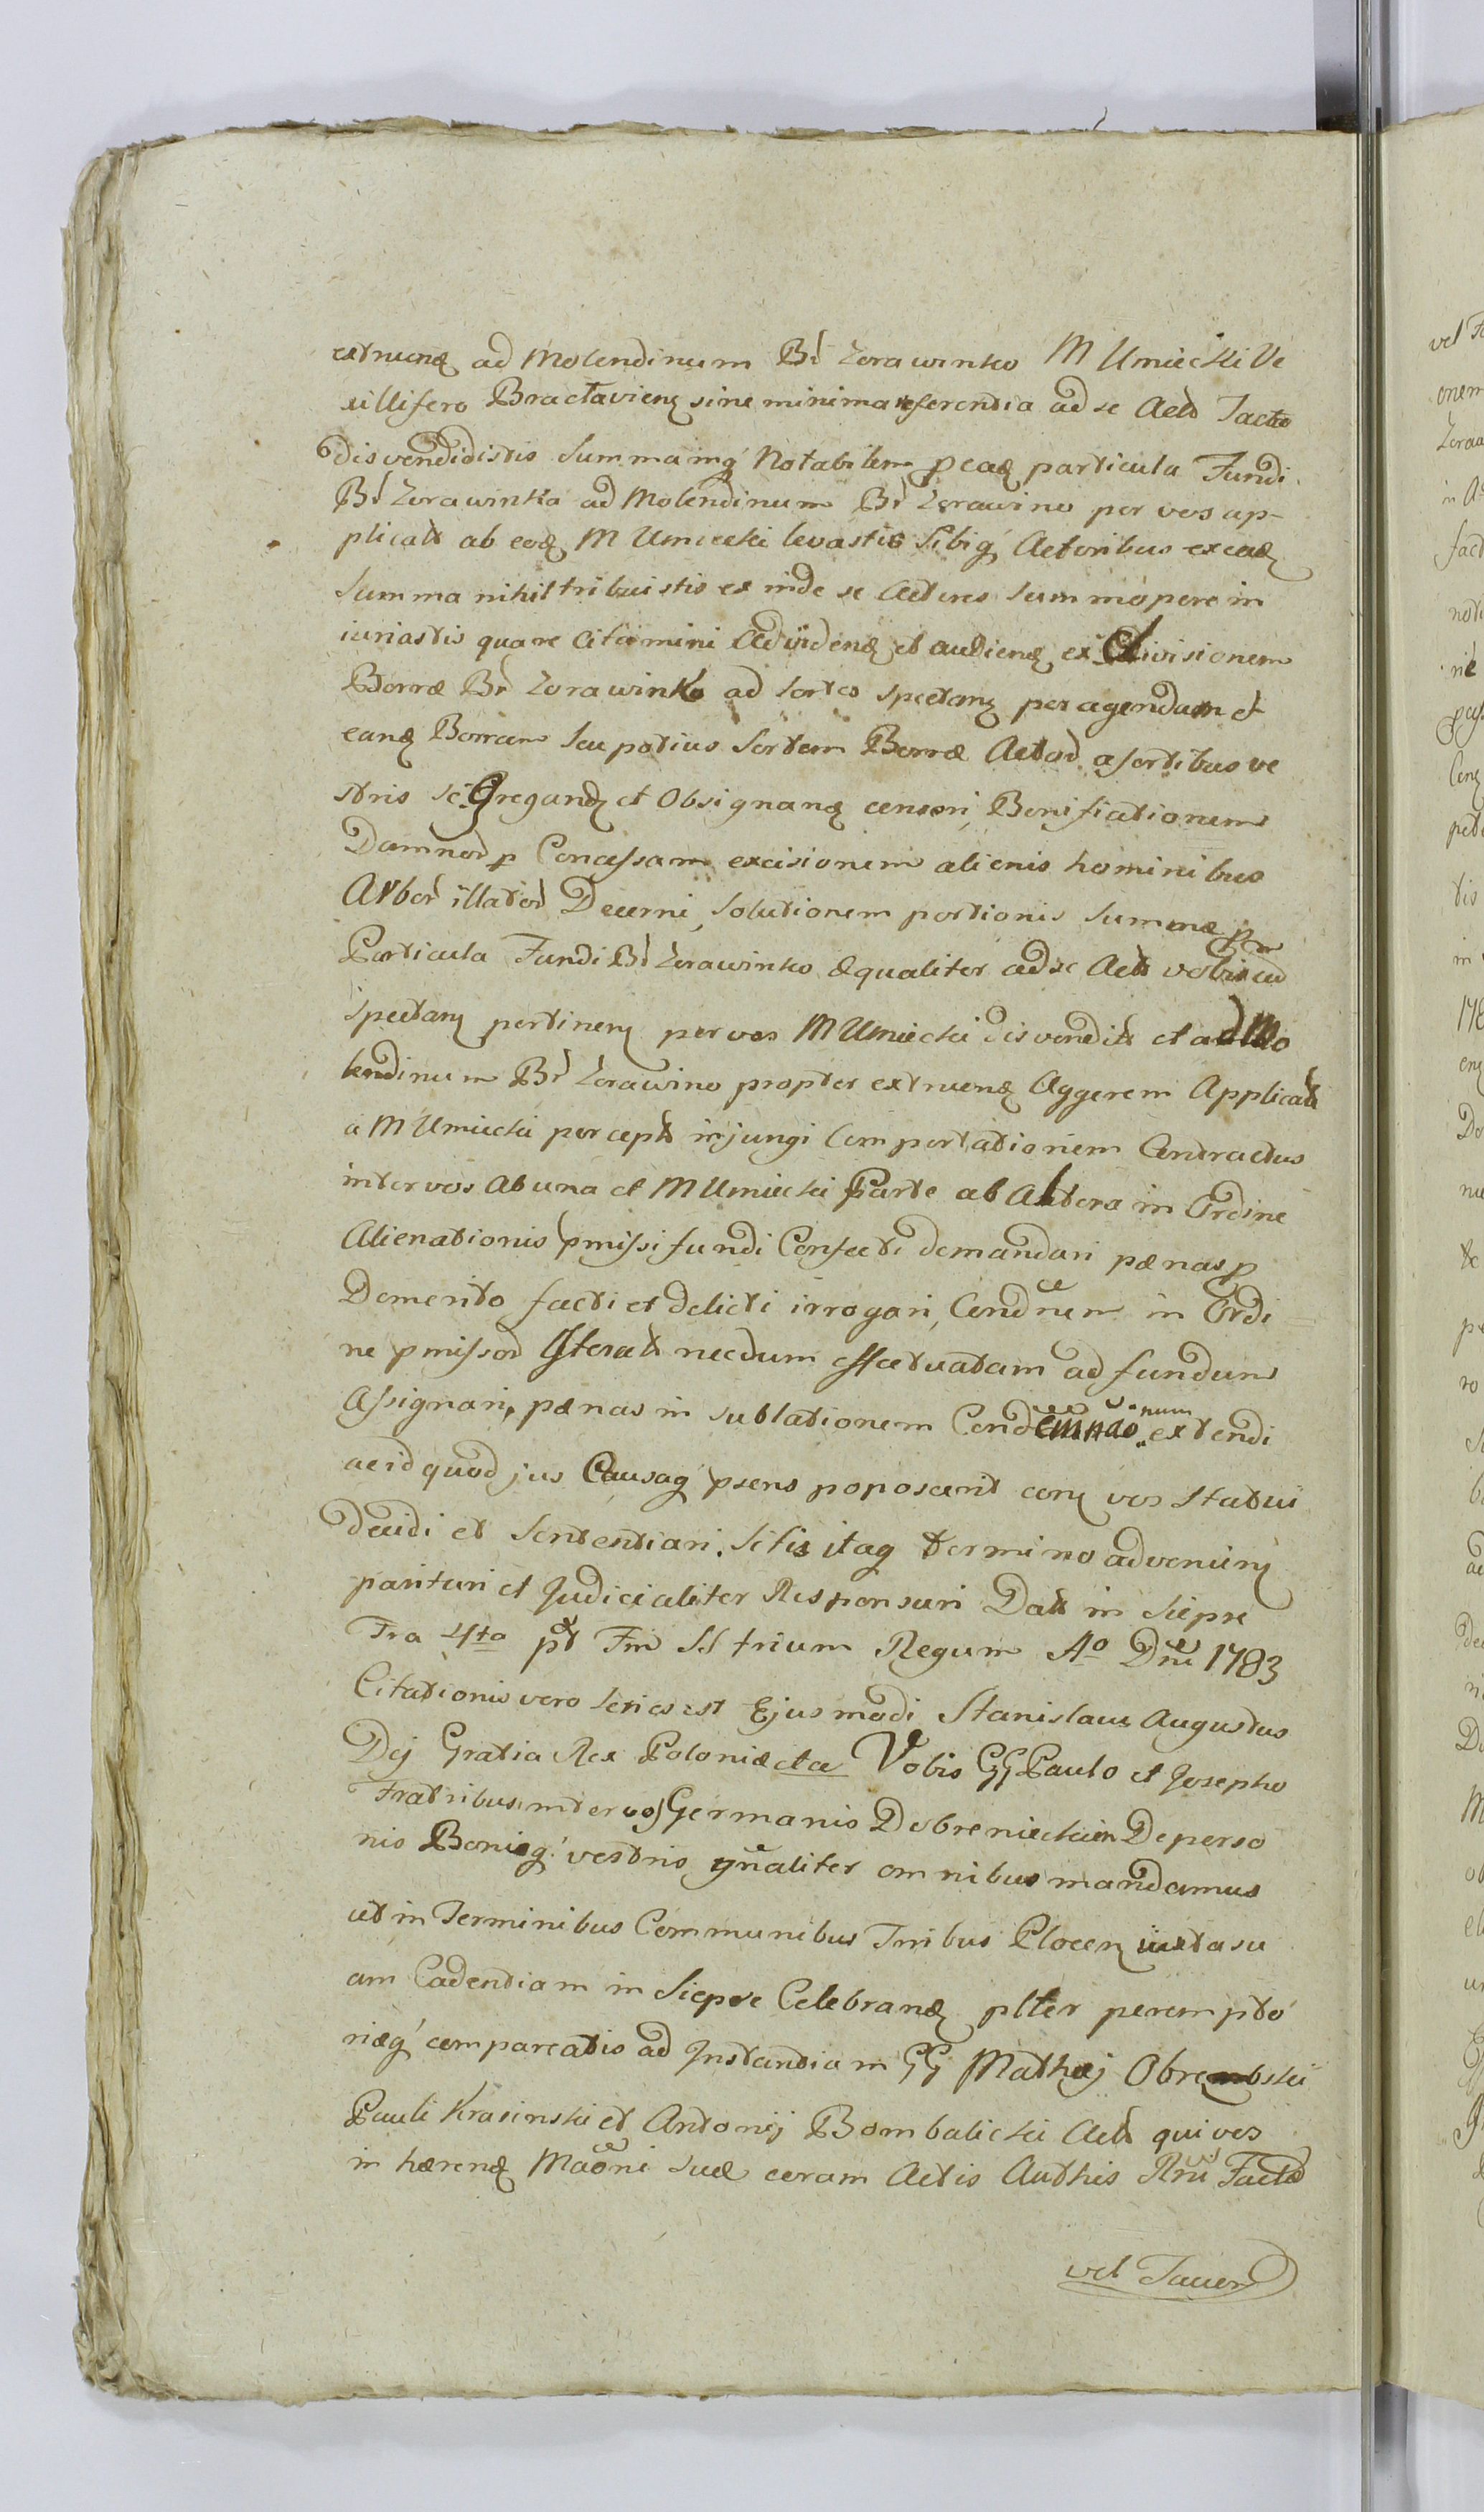 extruenꝫ ad Molendinum Br̃ Zorawinko M Umiecki Ve
xillifero Bractavienꝫ sine minima referentia ad se Actõ Facto
disvendidistis Summamq́ Notabilem p eaꝫ particula Fundi
Br̃ Zorawinka ad Molendinum Br̃ Zorawino per vos ap-
plicatt ab eoꝫ M Umiecki levastis Sibiq́ Actoribus ex eaꝫ
Summa nihil tribuistis ex inde se Actores Summopere in
iuriastis quare Citamini Ad videnꝫ et audienꝫ ex Divisionem
Borræ Br̃ Zorawinko ad Sortes spectanꝫ peragendam et
eanꝫ Borram Seu potius Sortem Borræ Actoꝝ a sortibus ve
stris se Gregandꝫ et Obsignanꝫ censeri, Bonificationem
Damnoꝝ p Concessam excisionem alienis hominibus
Arboꝝ illatoꝝ Decerni, Solutionem portionis Summæ p
Particula Fundi Br̃ Zorawinko æqualiter ad se Actt vobiscũ
Spectanꝫ pertinenꝫ per vos M Umiecki disvenditt et ad Mo
lendinum Br̃ Zorawino propter extruenꝫ Aggerem Applicatt
a M Umiecki perceptt injungi Comportationem Contractus
inter vos ab una et M Umiecki Parte ab Altera in Ordine
Alienationis pmissi fundi Confecti demandari pænas p
Demerito facti et delicti irrogari, Condñem in Ordi=
ne pmissoꝝ Iteratt necdum effectuatam ad fundum
Assignari, pænas in sublationem Condemnãonum extendi
ac id quod jus Causaq́ psens poposcerit conꝫ vos Statui
decidi et Sententiari. Sitis itaq́ termino advenienꝫ
parituri et Judicialiter Responsuri Datt in Siepre
Fra 4ta pt Fm SS trium Regum Aº Dñi 1783
Citationis vero Series est Ejusmodi Stanislaus Augustus
Dej Gratia Rex Poloniæ etce Vobis GG Paulo et Josepho
Fratribus inter vos Germanis Dobreniecki De perso
nis Bonisq́ vestris gñaliter omnibus mandamus
ut in Terminibus Communibus Tnibus Plocenꝫ iuxta su
am Cadentiam in Siepre Celebranꝫ plter perempto
rieq́ compareatis ad Instantiam GG Mathæj Obrembski
Pauli Krasinski et Antonij Bombalicki Actt qui vos
inhærenꝫ Mãoni Suæ coram Actis Authis Rñi Factæ
vel Facien